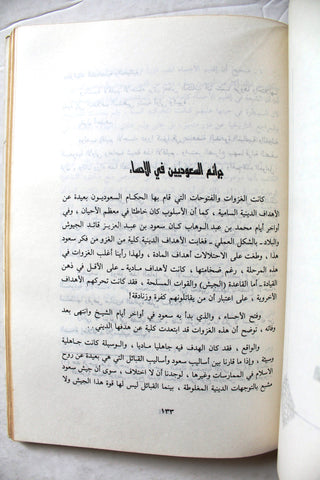 جرائم السعوديين في الاحساء
كانت الغزوات والفتوحات التي قام بها الحكام السعوديون بعيدة عن
الأهداف الدينية السامية ، كما أن الأسلوب كان خاطئا في معظم الأحيان ، وفي
أواخر أيام محمد بن عبد الوهاب كان سعود بن عبد العزيز قائد الجيوش
والبلاد ـ بالشكل العملي ـ فغابت الأهداف الدينية كلية من الغزو من فكر سعود
هذا ، وطغت على الاحتلالات أهداف المادة ، ولهذا رأينا أغلب الغزوات في
هذه المرحلة ، رغم ضخامتها ، كانت لأهداف مادية ـ على الأقل في ذهن
القيادة ـ أما القاعدة (الجيش) والقوات المسلحة ، فقد كانت تحركهم الأهداف
الأخروية ، على اعتبار أن من يقاتلونهم كفرة وزنادقة !
وفتح الأحساء ، والذي بدأ به سعود في أواخر أيام الشيخ وانتهى بعد
وفاته ، توضح أن هذه الغزوات قد ابتعدت كلية عن هدفها الديني . .
والواقع ، فقد كان الهدف فيه جاهليا ماديا ، والوسيلة كانت جاهلية
وسيئة ، وإذا ما قارنا بين أساليب سعود وأساليب القبائل التي هي بعيدة عن روح
الاسلام في الممارسات وغيرها ، لوجدنا أن لا اختلاف ، سوى أن جيش سعود
مشبع بالتوجهات الدينية المغلوطة ، بينما القبائل ليس لها قوة هذا الجيش ولا
١٣٣